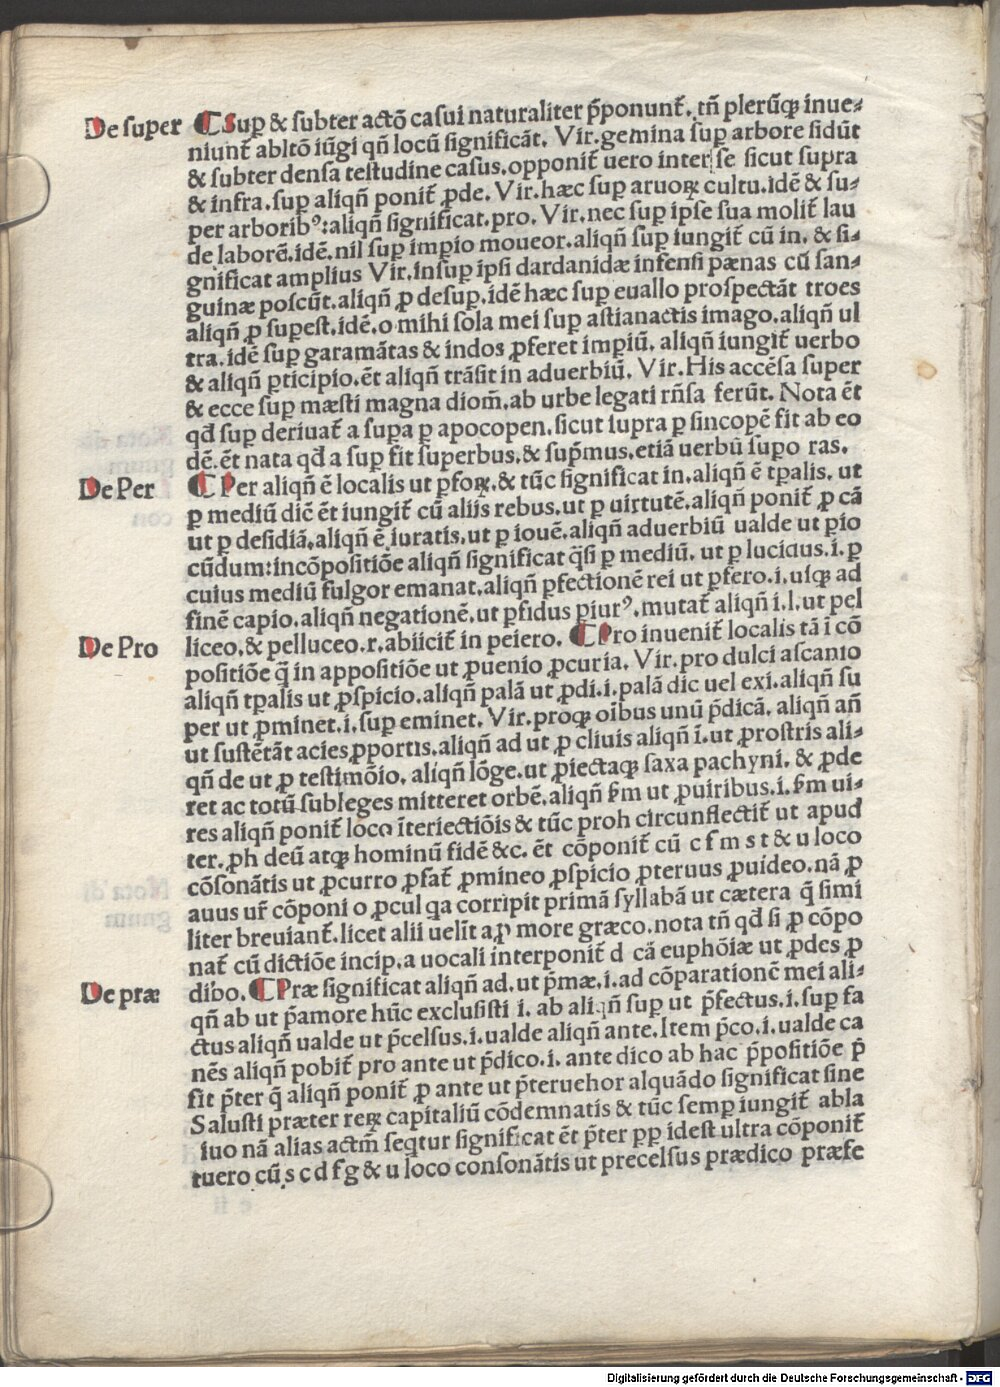 De super
¶Sup̱ & subter actō casui naturaliter p̄ponunt᷑. tñ plerūqꝫ inue⸗
niunt᷑ abltō iūgi qñ locū significāt. Vir. gemina sup̱ arbore sidūt
& subter densa testudine casus. opponit᷑ uero inter se sicut supra
& infra. sup̱ aliqñ ponit᷑ ꝓde. Vir. hæc sup̱ aruoꝝ cultu. idē & su⸗
per arboribꝰ: aliqñ significat. pro. Vir. nec sup̱ ipse sua molit᷑ lau
de laborē. idē. nil sup̱ impio moueor. aliqñ sup̱ iungit᷑ cū in. & si⸗
gnificat amplius Vir. insup̱ ipsi dardanidæ infensi pænas cū san⸗
guinæ poscūt. aliqñ ꝓ desup̱. idē hæc sup̱ euallo prospectāt troes
aliqñ ꝓ sup̱est. idē. o mihi sola mei sup̱ astianactis imago. aliqñ ul
tra. idē sup̱ garamātas & indos ꝓferet impiū. aliqñ iungit᷑ uerbo
& aliqñ ꝑticipio. ēt aliqñ trāsit in aduerbiū. Vir. His accēsa super
& ecce sup̱ mæsti magna diom̄. ab urbe legati rñsa ferūt. Nota ēt
qđ sup̱ deriuat᷑ a supa ꝑ apocopen. sicut iupra ꝑ sincopē fit ab eo
dē. ēt nata qđ a sup̱ fit superbus. & sup̄mus. etiā uerbū supo ras.
De Per
¶Per aliqñ ē localis ut ꝑfoꝝ. & tūc significat in. aliqñ ē tꝑalis. ut
ꝑ mediū dic̄ ēt iungit᷑ cū aliis rebus. ut ꝑ uirtutē. aliqñ ponit᷑ ꝓ cā
ut ꝑ desidiā. aliqñ ē iuratis. ut ꝑ iouē. aliqñ aduerbiū ualde ut ꝑio
cūdum: incōpositiōe aliqñ significat q̄si ꝑ mediū. ut ꝑ lucidus. i. ꝑ
cuius mediū fulgor emanat. aliqñ ꝑfectionē rei ut ꝑfero. i. usqꝫ ad
finē capio. aliqñ negationē. ut ꝑfidus ꝑiurꝰ. mutat᷑ aliqñ i. l. ut pel
De Pro
liceo. & pelluceo. r. abiicit᷑ in peiero. ¶Pro inuenit᷑ localis tā ī cō
positiōe q̄ in appositiōe ut ꝓuenio ꝓcuria. Vir. pro dulci ascanio
aliqñ tꝑalis ut ꝓspicio. aliqñ palā ut ꝓdi. i. palā dic uel exi. aliqñ su
per ut ꝓminet. i. sup̱ eminet. Vir. proqꝫ oībus unū p̄dicā. aliqñ añ
ut sustētāt acies ꝓportis. aliqñ ad ut ꝓ cliuis aliqñ ī. ut ꝓrostris ali⸗
qñ de ut ꝓ testimōio. aliqñ lōge. ut ꝓiectaqꝫ saxa pachyni. & ꝓde
ret ac totū subleges mitteret orbē. aliqñ ẜm ut ꝓuiribus. i. ẜm ui⸗
res aliqñ ponit᷑ loco īteriectiōis & tūc proh circunflectit᷑ ut apud
ter. ꝓh deū atqꝫ hominū fidē &c. ēt cōponit᷑ cū c f m s t & u loco
cōsonātis ut ꝓcurro ꝓfat᷑ ꝓmineo ꝓspicio ꝓteruus ꝓuideo. nā ꝓ
auus ur̄ cōponi o ꝓcul qa corripit primā syllabā ut cætera q̄ simi
liter breuiant᷑. licet alii uelīt a ꝓ more græco. nota tñ qđ si ꝓ cōpo
nat᷑ cū dictiōe incip. a uocali interponit᷑ d cā euphōiæ ut ꝓdes ꝓ
De præ
dibo. ¶Præ significat aliqñ ad. ut p̄mæ. i. ad cōparationē mei ali⸗
qñ ab ut p̄amore hūc exclusisti i. ab aliqñ sup̱ ut p̄fectus. i. sup̱ fa
ctus aliqñ ualde ut p̄celsus. i. ualde aliqñ ante. Item p̄co. i. ualde ca
nēs aliqñ pobit᷑ pro ante ut p̄dico. i. ante dico ab hac p̄positiōe p̄
fit p̄ter q̄ aliqñ ponit᷑ ꝓ ante ut p̄teruehor alquādo significat sine
Salusti præter reꝝ capitaliū cōdemnatis & tūc semꝑ iungit᷑ abla
iuo nā alias actm̄ seqtur significat ēt p̄ter ꝑꝑ idest ultra cōponit᷑
tuero cū s c d f g & u loco consonātis ut precelsus prædico præfe
Digitalisierung gefördert durch die Deutsche Forschungsgemeinschaft - DFG